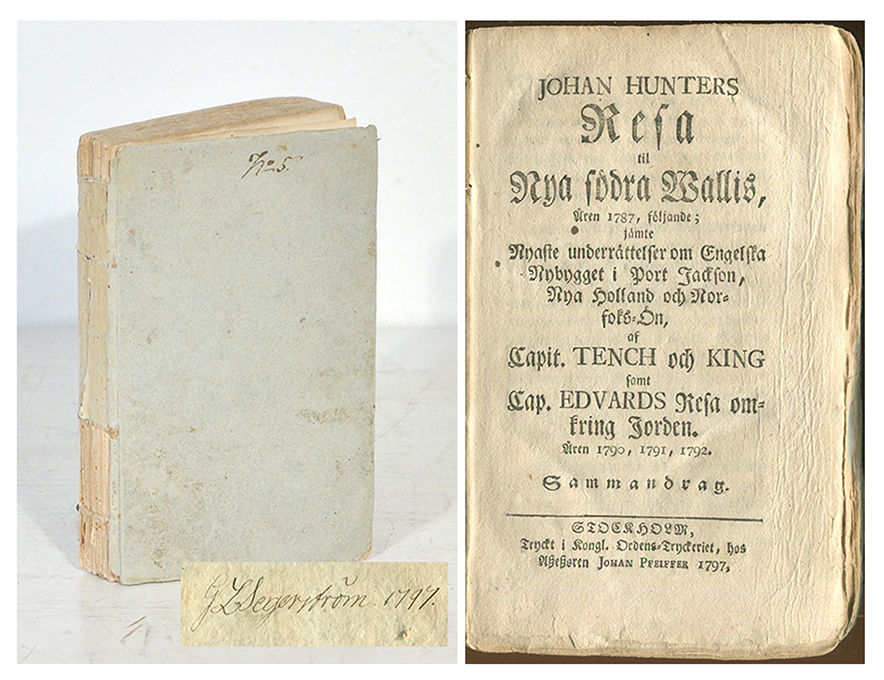 No 5.
G L Segerström. 1797.
JOHAN HUNTERS
Resa
til
Nya södra Wallis,
Åren 1787, följande;
jämte
Nyaste underrättelser om Engelska
Nybygget i Port Jackson,
Nya Holland och Nor-
foks-Ön,
af
Capit. TENCH och KING
samt
Cap. EDVARDS Resa om-
kring Jorden.
Åren 1790, 1791, 1792.
Sammandrag.
STOCKHOLM,
Tryckt i Kongl. Ordens-Tryckeriet, hos
Aßeßoren JOHAN PFEIFFER 1797,